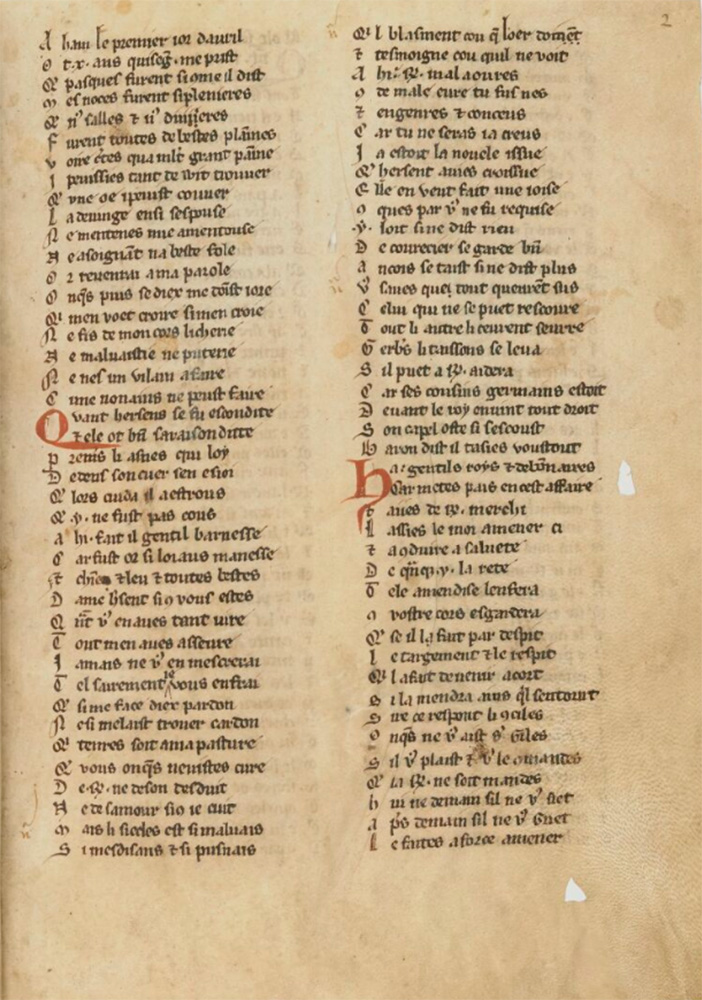 2
A haui le premier ior dauril
O t .x. ans quisoq̄s me prist
Q̃ pasques furent si ome il dist
M es noces furent si plenieres
Q̃ n̄r̄ salles ⁊ n̄r̄
F urent toutes de bestes plaīnes
V oire c̄tes qua mlt̄ grant paīne
I peuissies tant de wit trouuer
Q̃ vne oe i peuist couuer
L a deuinge ensi sespouse
N e mentenes mie amentouse
N e a soignāt na beste fole
O r reuenrai a ma parole
O nq̄s puis se diex me doīst ioie
Q̇ men voet croire si men croie
N e fis de mon cors licherie
N e maluaistie ne puterie
N e nes un vilain afaire
C une nonains ne peust faire
Q vant hersens se fu escondite
⁊ ele ot bn̄ sa raison ditte
P rems li asnes qui loy
D edens son cuer sen esioi
Q̃ lors cuida il a estrous
Q̃ .y. ne fust pas cous
A hi. fait il gentil barnesse
C ar fust or si loiaus manesse
⁊ chiēs ⁊ leu ⁊ toutes bestes
D ame h̄sent si 9 vous estes
Q n̄t v9 en aues tant uire
T out men aues asseure
I amais ne v9 en mescrerai
T el sairement vous en frai
Q̃ si me face diex pardon
N e si me laist trouer cardon
Q̃ tenres soit a ma pasture
Q̃ vous onq̄s neuistes cure
D e .R. ne de son desduit
N e de samour si 9 ie cuit
M ais li siecles est si maluais
S i mesdisans ⁊ si pusnais
Q̇l blasment cou q̄ loer doiuēt
⁊ tesmoigne cou quil ne voit
A hi. R. mal aoures
9 de male eure tu fus nes
⁊ engenres ⁊ conceus
C ar tu ne seras ia creus
I a estoit la nouele issue
Q̃ hersent auies croissue
E lle en veut fait une ioise
9 ques par v9 ne fu requise
.y. lott si ne dist rien
D e courecier se garde bn̄
A ncois se taist si ne dist plus
V saies quei tout queurēt sus
C elui qui ne se puet rescoure
T out li autre li ceurent seurre
G erbs li taissons se leua
S il puet a R. aidera
C ar ses cousins germains estoit
D euant le roy en uint tout droit
S on capel oste si sescoust
B aron dist il taisies vous tout
H a. gentils roys ⁊ debōnaires
Car metes pais en cest affaire
⁊ aies de R. merchi
L aissies le moi amener ci
⁊ a 9duire a saluete
D e q̄nq̄ .y. la rete
T ele amendise len fera
9 vostre cors esgardera
Q̃ se il la fait par despit
L e targement ⁊ le respit
Q̇ la fait de uenir a cort
S i la mendra ains q̄l sen tourt
S ire ce respont li 9ciles
O nq̄s ne v9 aist s̄ Giles
S il v9 plaist ⁊ v9 le 9mandes
Q̃ ia R. ne soit mandes
H ui ne demain sil ne v9 siet
A p̄s demain sil ne v9 griet
L e faites a force amener